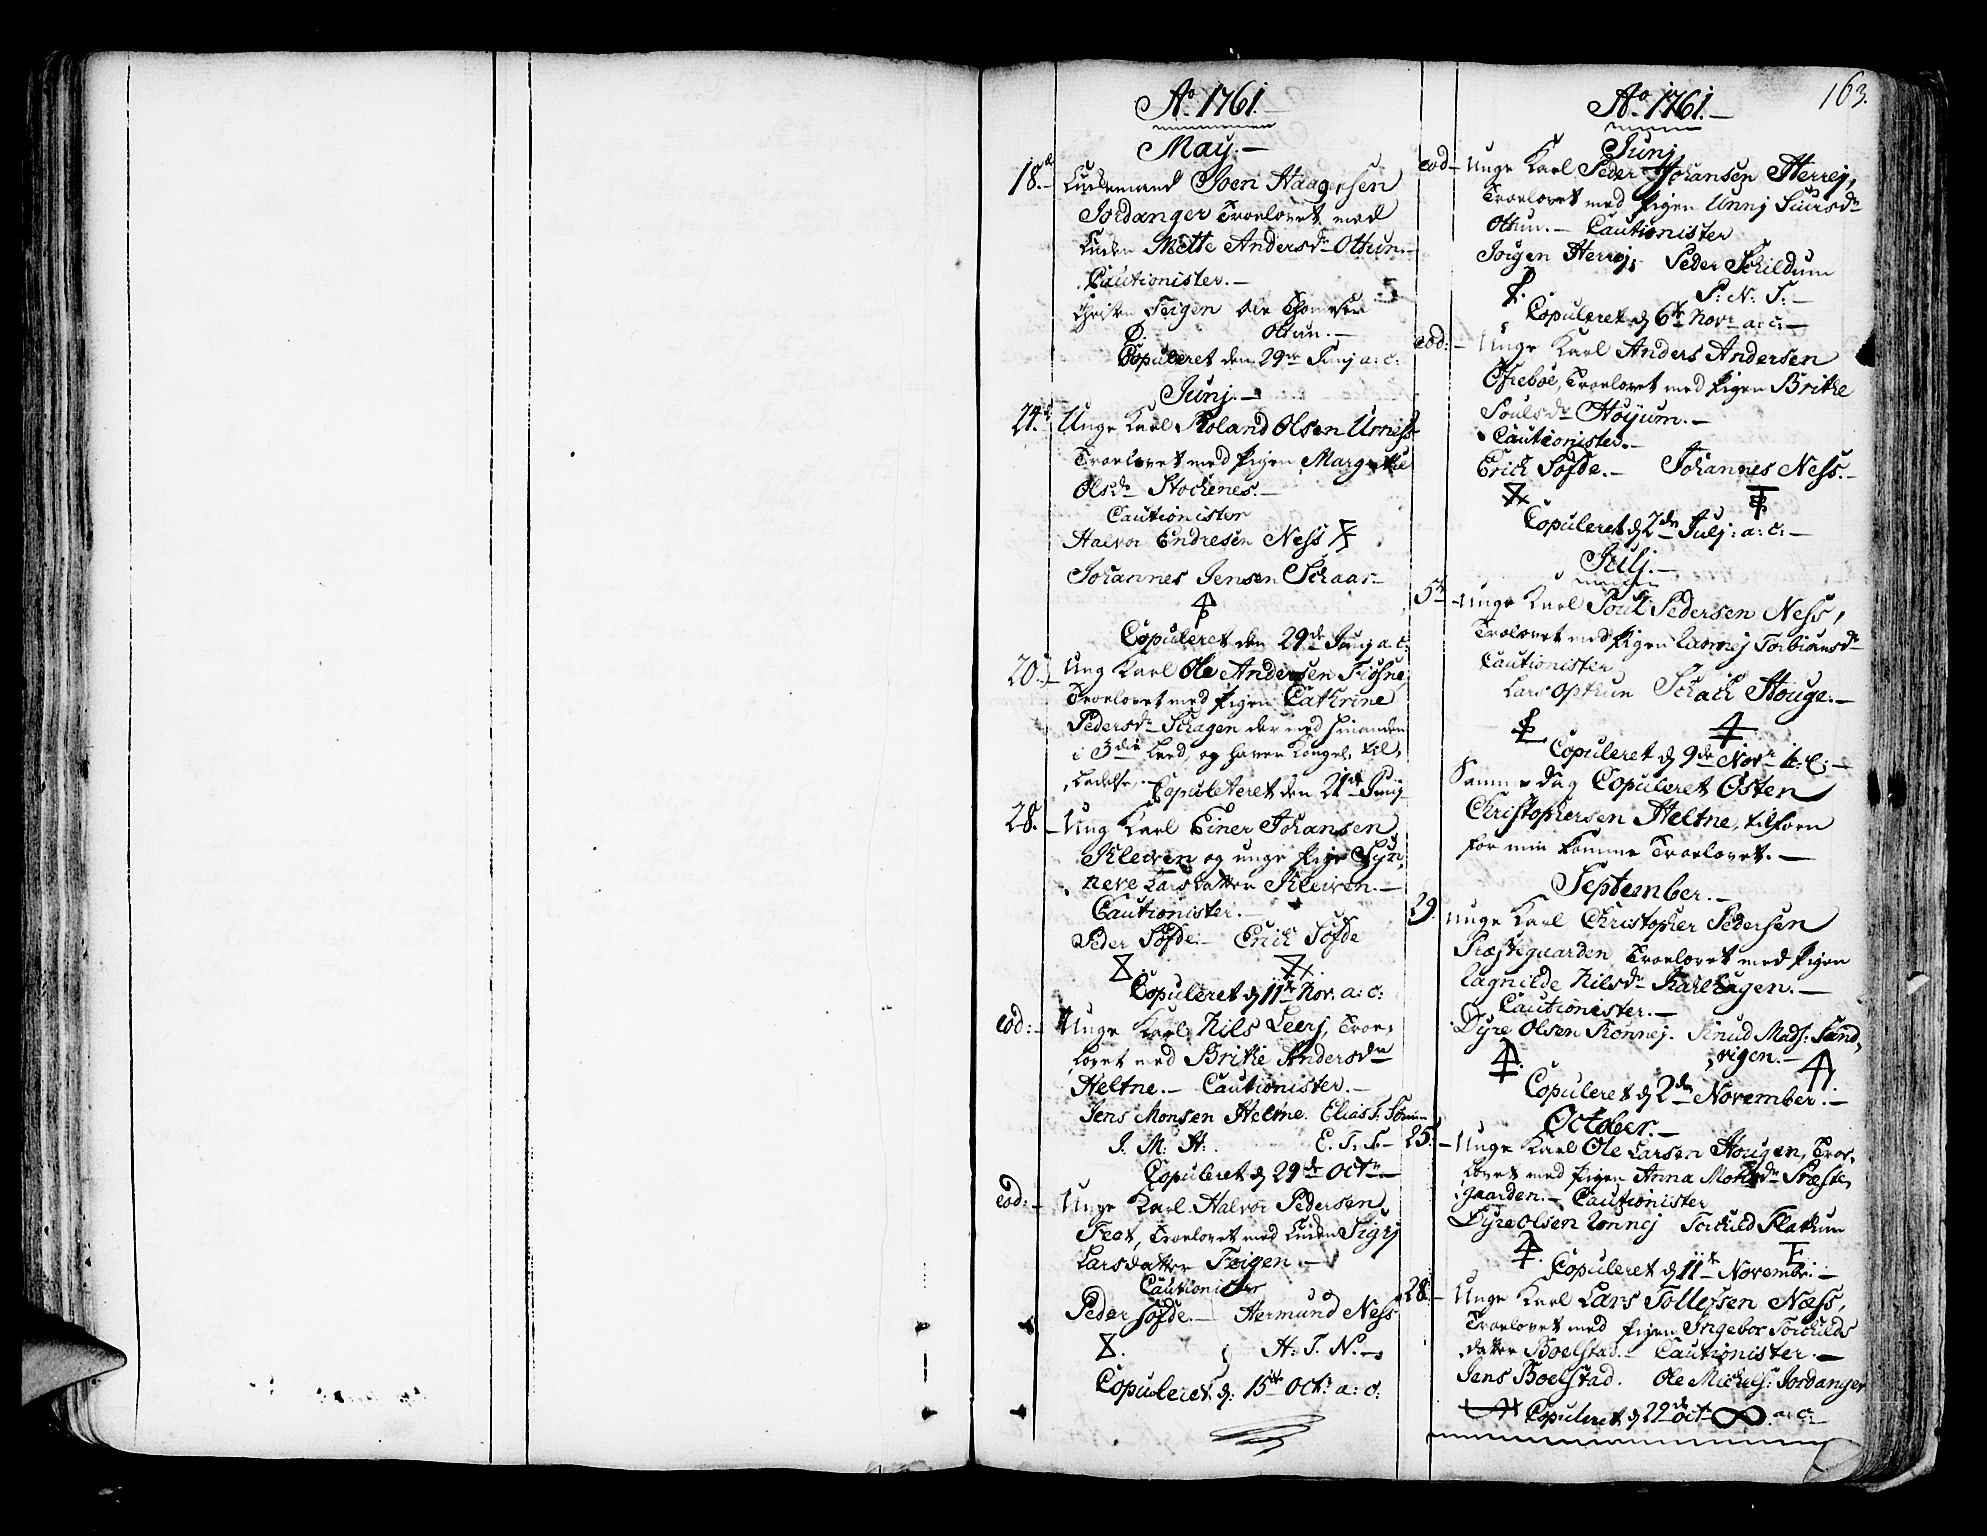 163.
Ao. 1761.
May.
18. Joen Haagensen
Jordanger Troelovet med
Enken Mette Andersdr Othun.
Cautionister.
Feigen Ole Thomesen
Othun.
Copuleret den 29de Junj a: c:
Junj.
21. Unge Karl Roland Olsen Urness
Troelovet med Pigen Margrethe
Olsdr Stochenes.
Cautionister
Halvor Endresen Ness
Johannes Jensen Schaar
Copuleret den 29de Junj a. c:
20. Ung Karl Ole Andersen Fiøsne
Troelovet med Pigen Cathrine
Pedersdr Schagen der med hinanden
i 3die Leed, og haver Kongel. til
ladelse. Copuleret den 21de Junj
28. Ung Karl Einer Johansen
Kleiven og unge Pige Syn
neve Larsdatter Kleiven.
Cautionister.
Peder Søfde. Erich Søfde
Copuleret d. 11te Nov. a: c:
eod: Unge Karl Nils Leerj, Troe
lovet med Brithe Andersdr
Heltne. Cautionister.
Jens Monsen Heltne. Elias T.
J. M. H. E. T. S.
Copuleret d 29de Octr
eod: Unge Karl Halvor Pedersen
Feat, Troelovet med Enken Sigrj
Larsdatter Feigen.
Cautionister
Peder Søfde. Hermund Ness
H. T. N.
Copuleret d. 15de Octr a: c:
Ao. 1761.
Junj
eod Unge Karl Peder Johansen Herrej,
Troelovet med Pigen Unnj Siursdr
Othun. Cautionister
Jørgen Herrej, Peder Schildum
P: N: S:
Copuleret d 6te Novr a: c:
eod: Unge Karl Anders Andersen
Øfrebøe, Troelovet med Pigen Brithe
Poulsdr Høyum.
Cautionister.
Erich Søfde. Johannes Ness.
Copuleret d 2den Julj: a: c:
Julj.
5te Unge Karl Poul Pedersen Ness,
Troelovet med Pigen Torbiønsdr
Cautionister
Lars Opthun Schach Houge.
Copuleret d 9de Novr a: c:
Samme Dag Copuleret Østen
Christophersen Heltne, tilforn
for min komme Troelovet.
September.
29. Unge Karl Christopher Pedersen
Præsteguarden Troelovet med Pigen
Ragnilde Nilsdr
Cautionister.
Dyre Olsen Rønnej. Knud Mads: Sand
vigen.
Copuleret d 2den November.
October.
25. Unge Karl Ole Larsen Hougen, Troe
lovet med Pigen Anna Præste
gaarden. Cautionister
Dyre Olsen Rønnej Torchild Flathum
Copuleret d 11te Novembr:
28. Unge Karl Lars Tollefsen Næss,
Troelovet med Pigen Ingebor Torchilds
datter Boelstad. Cautionister.
Jens Boelstad. Ole Michels: Jordanger
Copuleret d 29de Octr a: c: